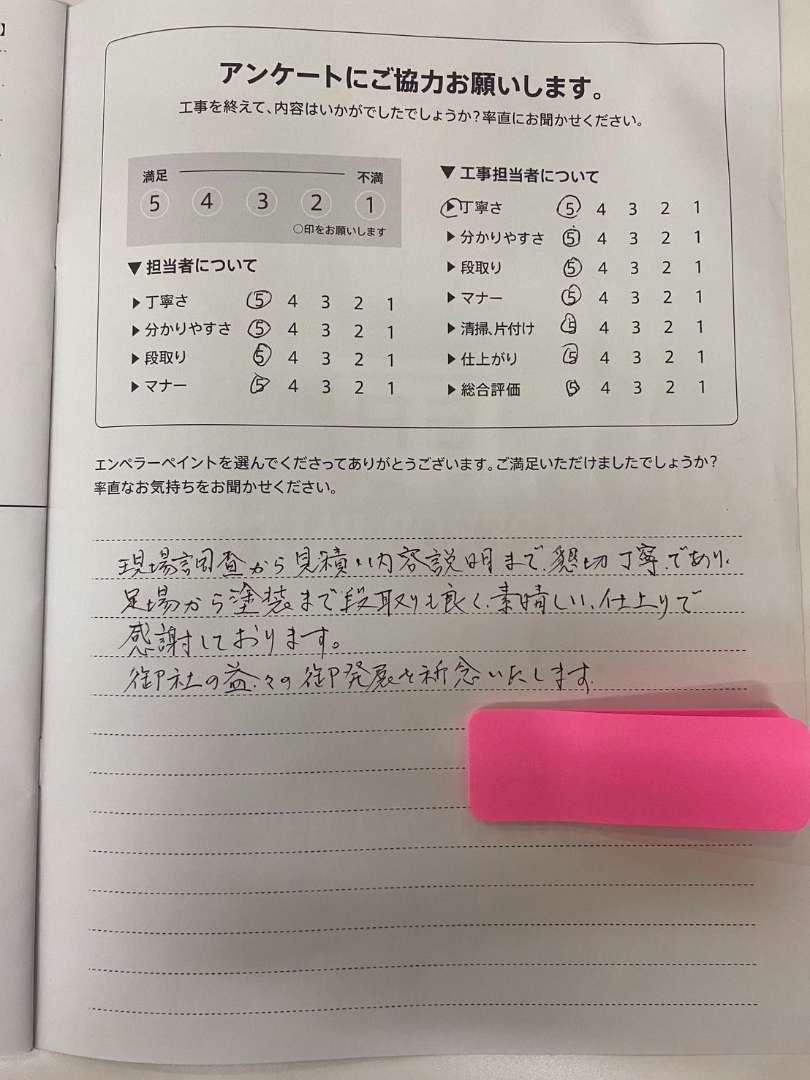 アンケートにご協力お願いします。
工事を終えて、内容はいかがでしたでしょうか?率直にお聞かせください。
満足 不満
5 4 3 2 1
○印をお願いします
▼担当者について
▶丁寧さ 5 4 3 2 1
▶分かりやすさ 5 4 3 2 1
▶段取り 5 4 3 2 1
▶マナー 5 4 3 2 1
▼工事担当者について
▶丁寧さ 5 4 3 2 1
▶分かりやすさ 5 4 3 2 1
▶段取り 5 4 3 2 1
▶マナー 5 4 3 2 1
▶清掃、片付け 5 4 3 2 1
▶仕上がり 5 4 3 2 1
▶総合評価 5 4 3 2 1
エンペラーペイントを選んでくださってありがとうございます。ご満足いただけましたでしょうか?
率直なお気持ちをお聞かせください。
現場調査から見積い内容説明まで、懇切丁寧であり、
足場から塗装まで段取りも良く、素晴しい、仕上りで
感謝しております。
御社の益々の御発展を祈念いたします。